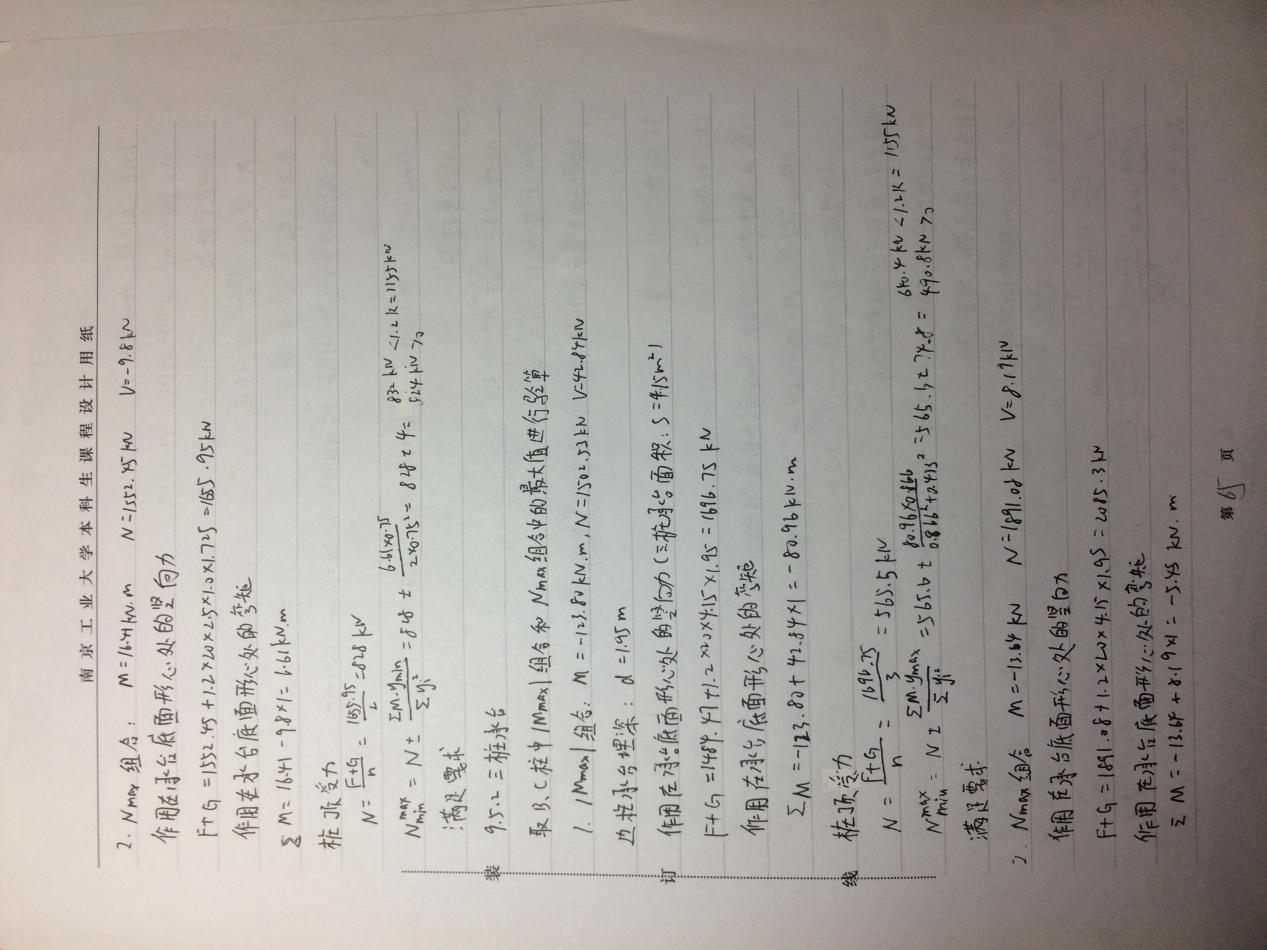 南京工业大学本科生课程设计用纸
2. Nmax 组合: M=16.41kN.m N=1552.45kN V=-9.8kN
作用在承台底面形心处的竖向力
F+G=1552.45+1.2×20×2.5×1.0×1.725=1655.95kN
作用在承台底面形心处的弯矩
ΣM=16.41-9.8×1=6.61kN.m
桩顶受力
N=(F+G)/n=1655.95/2=828kN
Nmax min=N±ΣM·ymin/Σyi²=828±6.61×0.75/2×0.75²=828±4= 832kN<1.2R=1155kN 824kN>0
满足要求
9.5.2 三桩承台
取B、C柱中|Mmax|组合和Nmax组合中的最大值进行验算
1. |Mmax|组合: M=-123.80kN.m, N=1502.53kN V=42.84kN
边桩承台埋深: d=1.95m
作用在承台底面形心处的竖向力(三桩承台面积:S=4.15m²)
F+G=1484.47+1.2×20×4.15×1.95=1696.75kN
作用在承台底面形心处的弯矩
ΣM=-123.80+42.84×1=-80.96kN.m
桩顶受力
N=(F+G)/n=1696.75/3=565.5kN
Nmax min=N±ΣM·ymax/Σyi²=565.6±80.96×0.866/0.866²+2.433²=565.6±74.8= 640.4kN<1.2R=1155kN 490.8kN>0
满足要求
2. Nmax组合 M=-13.64kN N=1891.08kN V=8.19kN
作用在承台底面形心处的竖向力
F+G=1891.08+1.2×20×4.15×1.95=2085.3kN
作用在承台底面形心处的弯矩
ΣM=-13.64+8.19×1=-5.45kN.m
装
订
线
第65页